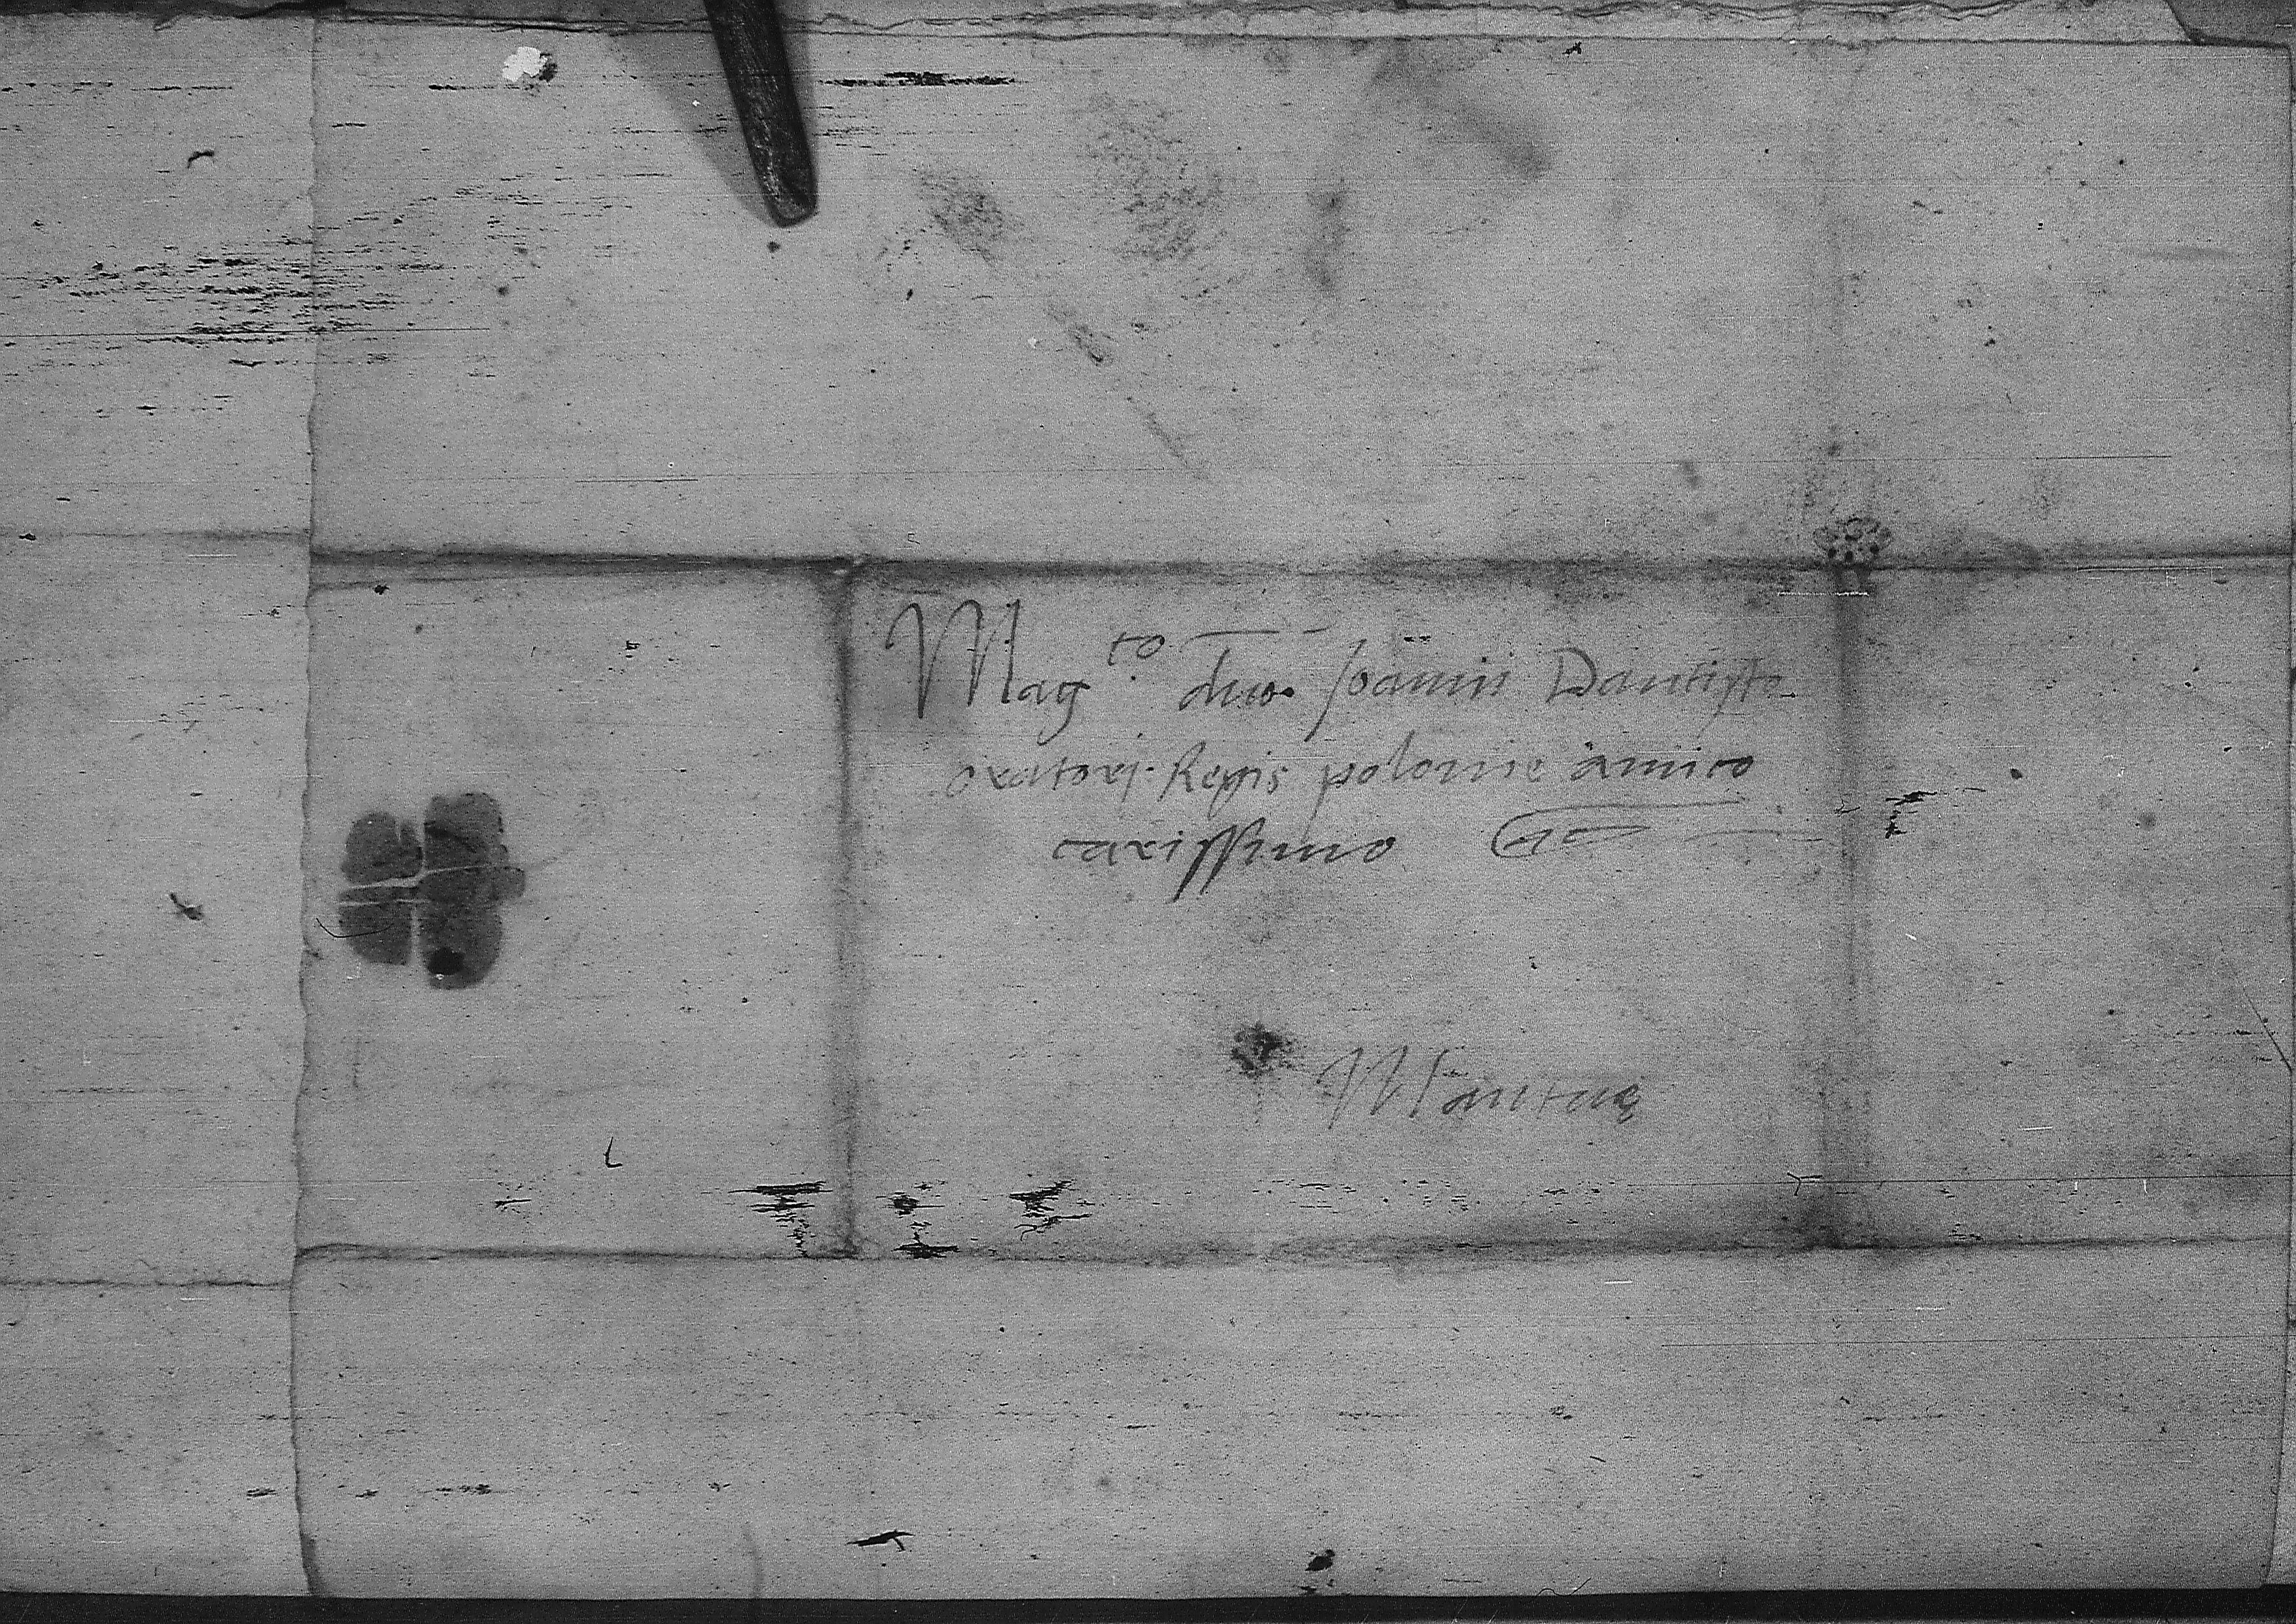 Mag.to d̄no Joannii Dantisco
oratorj Regis polonie amico
carissimo
Mantuę